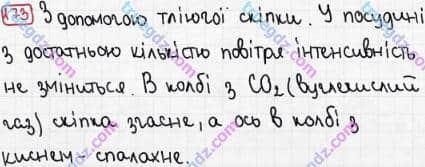 173 З допомогою тліючої скіпки. У посудині
з достатньою кількістю повітря інтенсивність
не зміниться. В колбі з CO₂ (вуглекислий
газ) скіпка згасне, а ось в колбі з
киснем - спалахне.